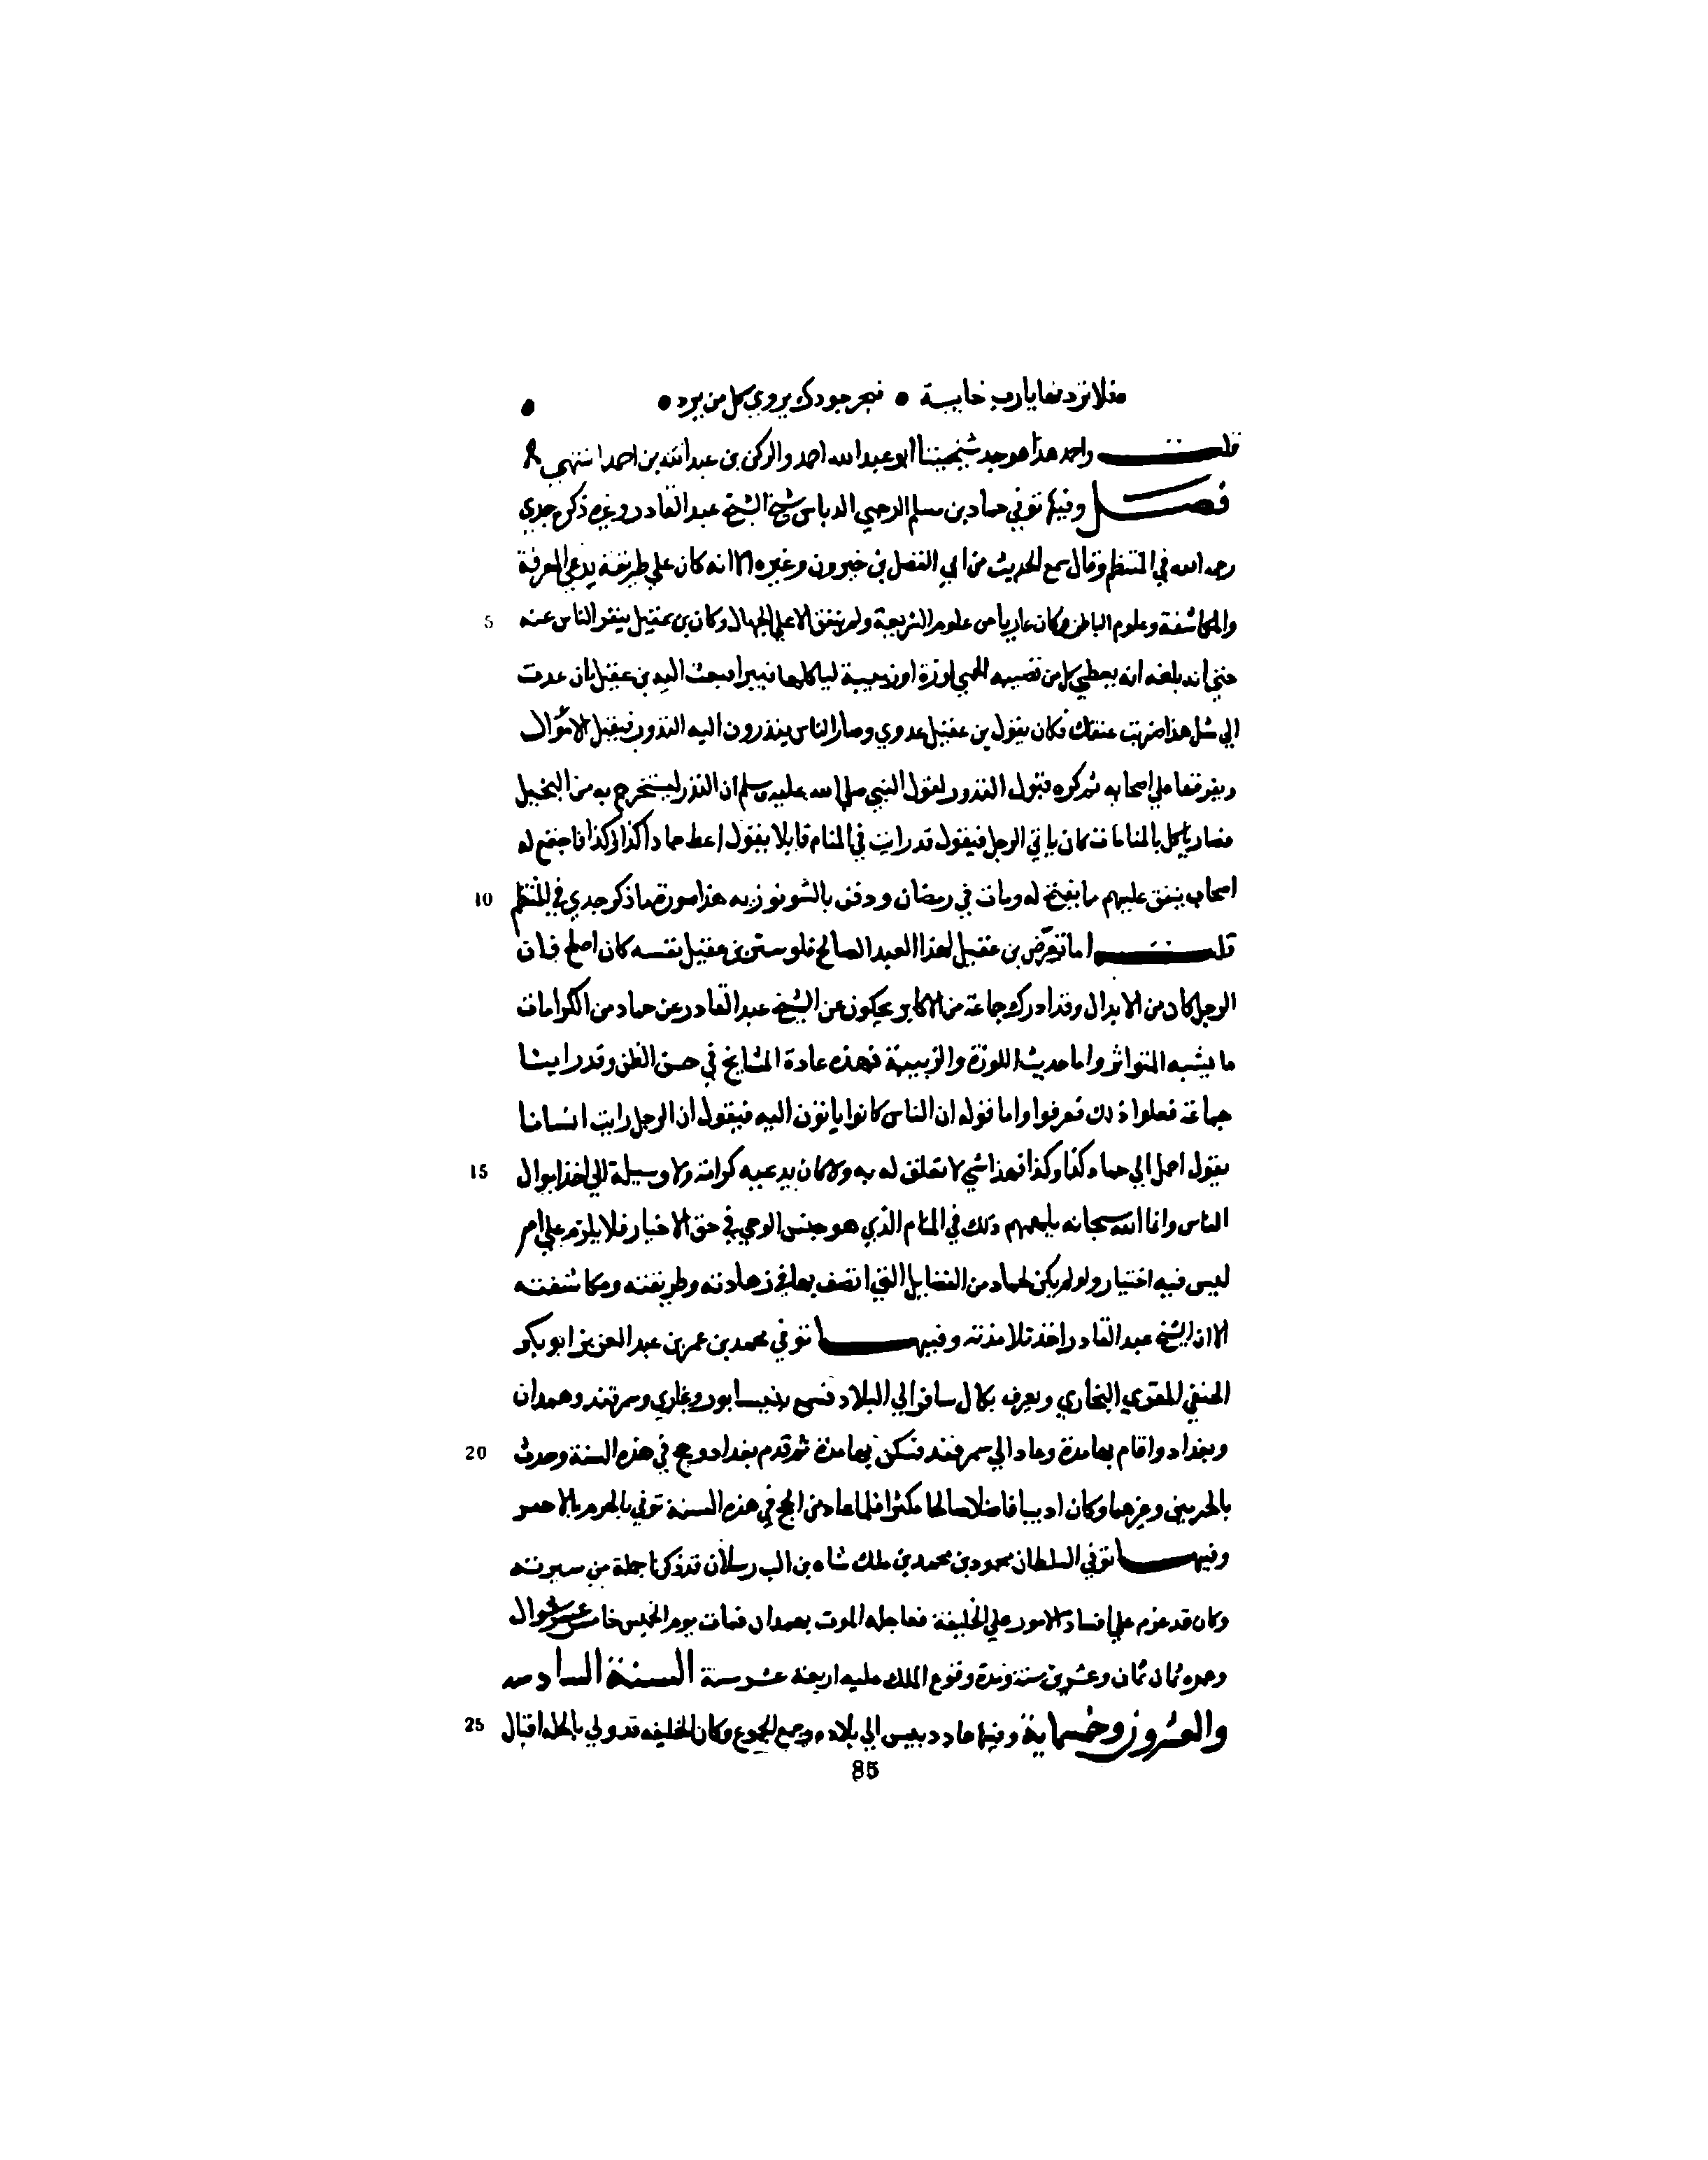 فلا تردنها يارب خايبة • فبحر جودك يروي كل من يرد •
قلت واحمد هذا هو جد شيخنا ابو عبد الله احمد والركن بن عبد الله بن احمد انتهى
فصل وفيها توفي حماد بن مسلم الرحبي الدباس شيخ الشيخ عبد القادر وغيره ذكره جدي
رحمه الله في المنتظم وقال سمع الحديث من ابي الفضل بن خيرون وغيره الا انه كان علي طريقة يدعي المعرفة
5 والمكاشفة وعلوم الباطن وكان عاريا من علوم الشريعة ولم ينفق الا علي الجهال وكان بن عقيل ينفر الناس عنه
حتي انه بلغه انه يعطي كل من تصيبه الحمي لوزة او زبيبة لياكلها فيبرا فبعث اليه بن عقيل ان عدت
الي مثل هذا ضربت عنقك فكان يقول بن عقيل عدوي وصار الناس ينذرون اليه النذور فيقبل الاموال
ويفرقها علي اصحابه ثم كره قبول النذور لقول النبي صلي الله عليه وسلم ان النذر ليستخرج به من البخيل
فصار ياكل بالمنامات كان ياتي الرجل فيقول قد رايت في المنام قايلا يقول اعط حمادا كذا وكذا فاجتمع له
10 اصحاب ينفق عليهم ما يفتح له ومات في رمضان ودفن بالشونوزيه هذا صورة ما ذكر جدي في المنتظم
قلت اما تعرض بن عقيل لهذا العبد الصالح فلو ستر بن عقيل نفسه كان اصلح فان
الرجل كان من الابدال وقد ادركت جماعة من الاكابر يحكون عن الشيخ عبد القادر عن حماد من الكرامات
ما يشبه المتواتر واما حديث اللوزة والزبيبة فهذه عادة المشايخ في حسن الظن وقد راينا
جماعة فعلوا ذلك فعرفوا واما قوله ان الناس كانوا ياتون اليه فيقول ان الرجل رايت انسانا
15 يقول احمل الي حماد كذا وكذا فهذا شي لا تعلق له به ولا كان يدعيه كرامة ولا وسيلة الي اخذ اموال
الناس وانما الله سبحانه يلهمهم ذلك في المنام الذي هو جنس الوحي في حق الاخيار فلا يلزم علي امر
ليس فيه اختيار ولو لم يكن لحماد من الفضايل التي اتصف بها في زهادته وطريقته ومكاشفته
الا ان الشيخ عبد القادر احد تلامذته وفيها توفي محمد بن عمر بن عبد العزيز ابو بكر
الحنفي المقري البخاري ويعرف بكال سافر الي البلاد فسمع بنيسابور وبخاري وسمرقند وهمدان
20 وبغداد واقام بها مدة وعاد الي سمرقند فسكن بها مدة ثم قدم بغداد وحج في هذه السنة وحدث
بالحرمين وغيرهما وكان اديبا فاضلا صالحا مكثرا فلما عاد من الحج في هذه السنة توفي بالاجفر
وفيها توفي السلطان محمود بن محمد بن ملك شاه بن الب رسلان قد ذكرنا جملة من سيرته
وكان قد عزم علي افساد الامور علي الخليفة فعاجله الموت بهمدان فمات يوم الخميس خامس عشر شوال
وعمره ثمان وعشرين سنة ومدة وقوع الملك عليه اربعة عشر سنة السنة السادسه
25 والعشرون وخمسماية وفيها عاد دبيس الي بلاده وجمع الجموع وكان الخليفه قد ولي بالحله اقبال
85